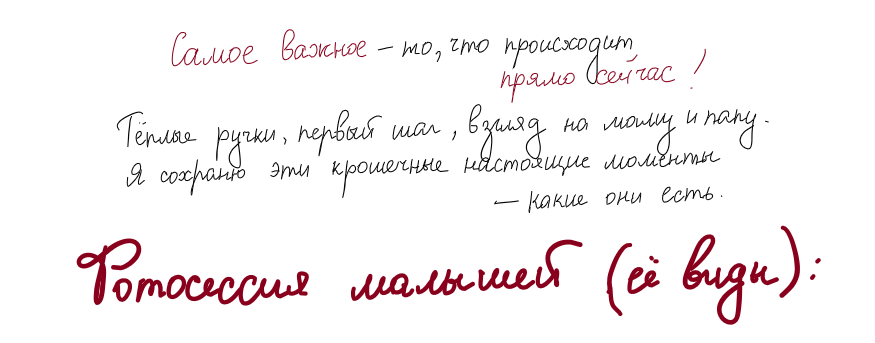 Самое важное – то, что происходит
прямо сейчас!
Тёплые ручки, первый шаг, взгляд на маму и папу.
Я сохраню эти крошечные настоящие моменты
– какие они есть.
Фотосессия малышей (её виды):